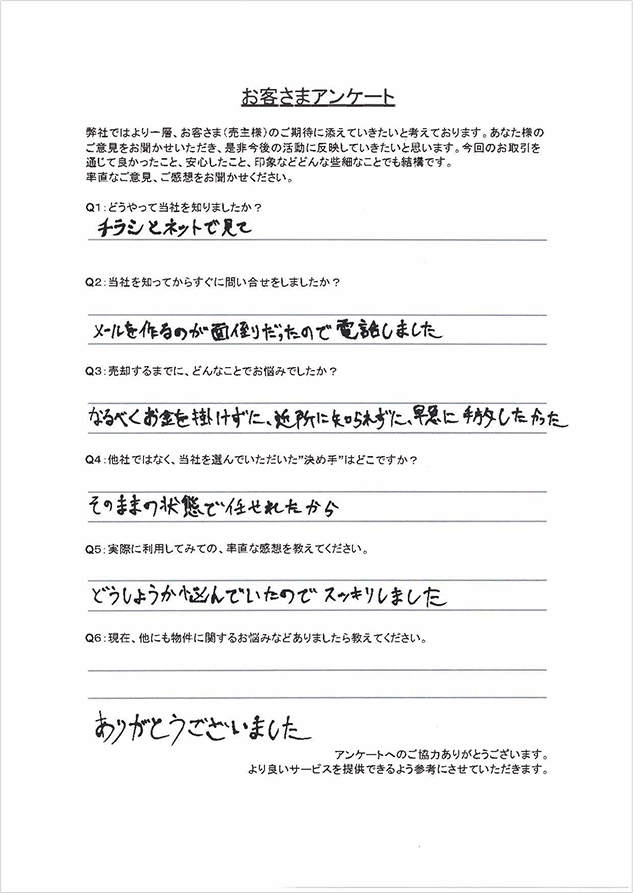 お客さまアンケート
弊社ではより一層、お客さま(売主様)のご期待に添えていきたいと考えております。あなた様の
ご意見をお聞かせいただき、是非今後の活動に反映していきたいと思います。今回のお取引を
通じて良かったこと、安心したこと、印象などどんな些細なことでも結構です。
率直なご意見、ご感想をお聞かせください。
Q1:どうやって当社を知りましたか?
チラシとネットで見て
Q2:当社を知ってからすぐに問い合せをしましたか?
メールを作るのが面倒だったので電話しました
Q3:売却するまでに、どんなことでお悩みでしたか?
なるべくお金を掛けずに、近所に知られずに、早急に手放したかった
Q4:他社ではなく、当社を選んでいただいた"決め手"はどこですか?
そのままの状態で任せれたから
Q5:実際に利用してみての、率直な感想を教えてください。
どうしようか悩んでいたのでスッキリしました
Q6:現在、他にも物件に関するお悩みなどありましたら教えてください。
ありがとうございました
アンケートへのご協力ありがとうございます。
より良いサービスを提供できるよう参考にさせていただきます。